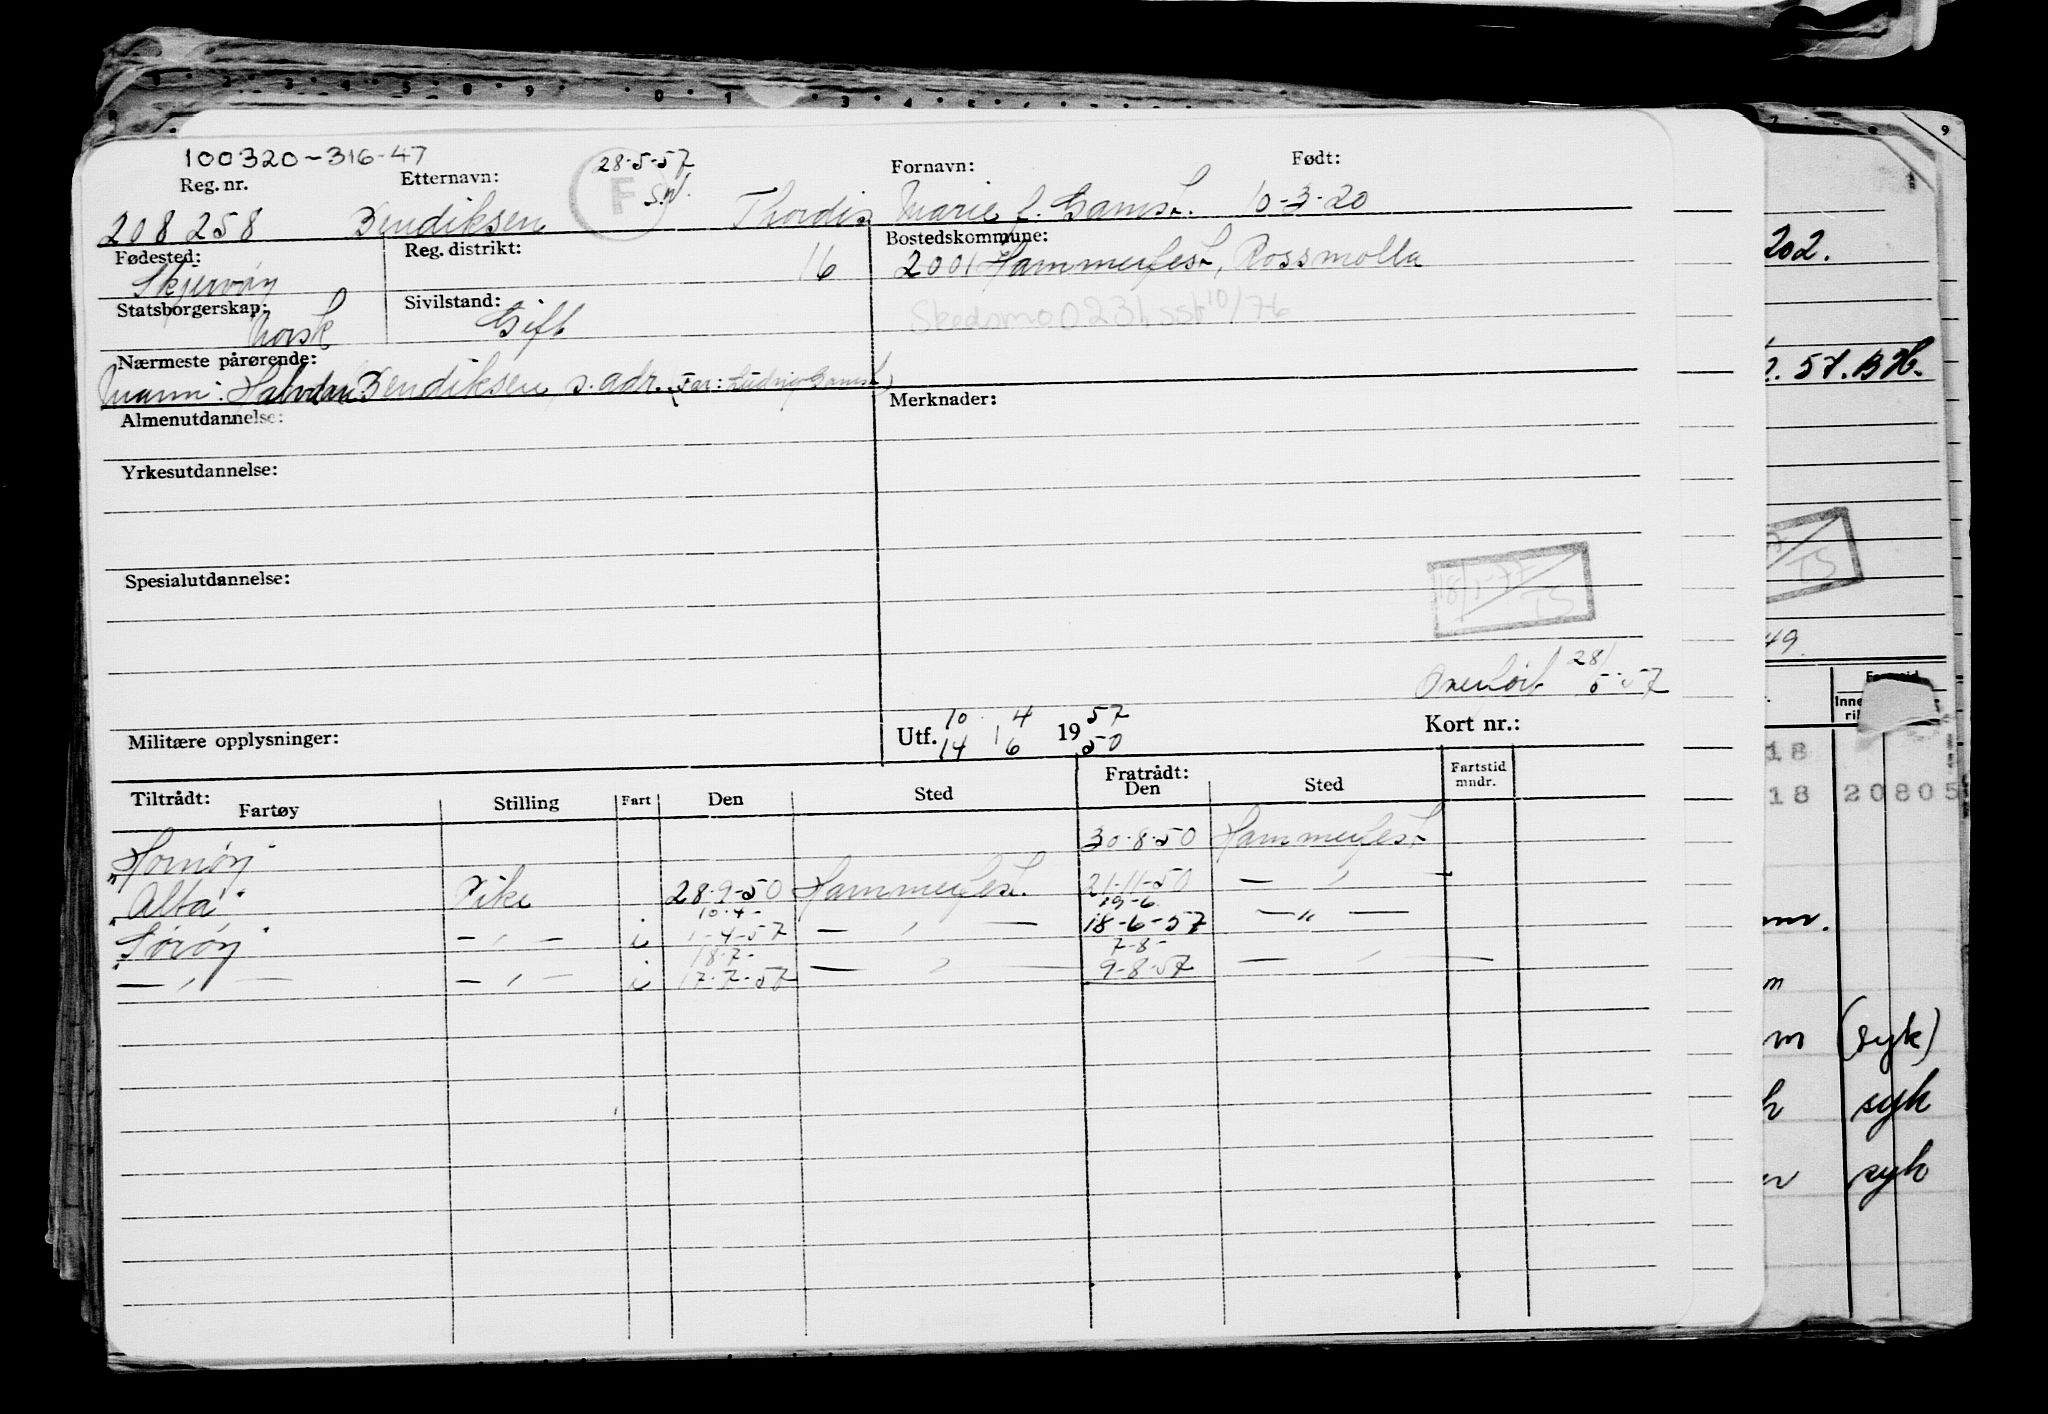 100320-316-47
Reg. nr. Etternavn: 28-5-57 Fornavn: Født:
F
208258 Bendiksen Thordis Marie f. Gamst. 10-3-20
Fødested: Reg. distrikt: Bostedskommune:
Skjervøy 16 2001 Hammerfest, Rossmolla
Statsborgerskap: Sivilstand:
Norsk Gift Skedsmo 0231 sst 10/76
Nærmeste pårørende:
Mann: Halvdan Bendiksen, s. adr. (Far: Ludvig Gamst)
Almenutdannelse: Merknader:
Yrkesutdannelse:
Spesialutdannelse:
18/1-77 TS
Overført 28/5-57
Militære opplysninger: Utf. 10 4 1957 Kort nr.:
14 6 50
Tiltrådt: Fratrådt: Fartstid mndr.
Fartøy Stilling Fart Den Sted Den Sted
"Hornøy" 30-8-50 Hammerfest
"Alta" Pike 28-9-50 Hammerfest. 21-11-50 — " —
10-4- 19-6
"Sørøy" — " — i 1-4-57 — " — 18-6-57 — " —
18-7- 7-8-
— " — — " — i 17-7-57 — " — 9-8-57 — " —
202.
57. BH.
TS
49.
18
18 20805
m (syk)
syk
syk